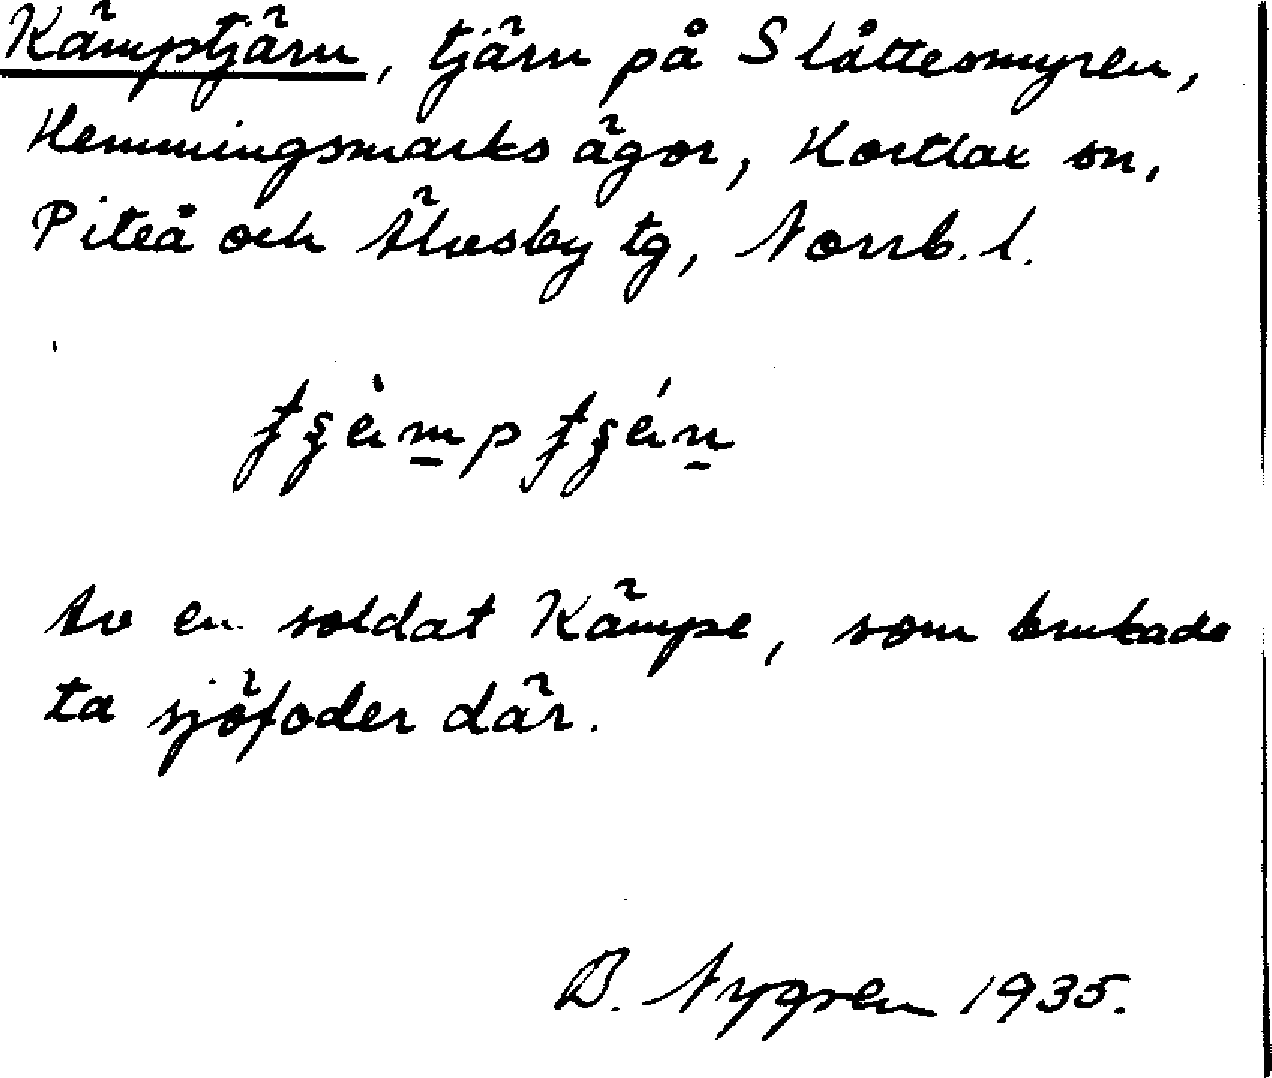 Kämptjärn, tjärn på Slåttesmyren,
Hemmingsmarks ägor, Hortlax sn,
Piteå och Älvsby tg, Norrb. l.
Av en soldat Kämpe, som brukade
ta sjöfoder där.
B. Nygren 1935.